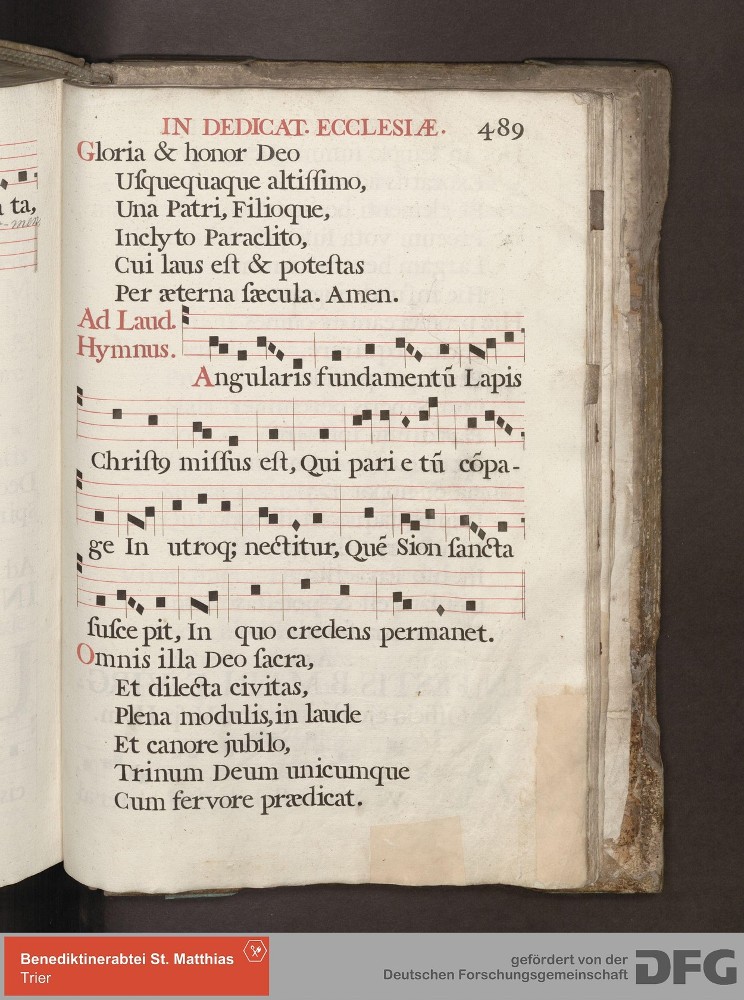 IN DEDICAT. ECCLESIÆ. 489
Gloria & honor Deo
Uſquequaque altiſſimo,
Una Patri, Filioque,
Inclyto Paraclito,
Cui laus eſt & poteſtas
Per æterna ſæcula. Amen.
Ad Laud.
Hymnus.
Angularis fundamentũ Lapis
Chriſtꝯ miſſus eſt, Qui pari e tũ cõpa-
ge In utroq; nectitur, Quẽ Sion ſancta
ſuſce pit, In quo credens permanet.
Omnis illa Deo ſacra,
Et dilecta civitas,
Plena modulis, in laude
Et canore jubilo,
Trinum Deum unicumque
Cum fervore prædicat.
ta,
Benediktinerabtei St. Matthias
Trier
gefördert von der
Deutschen Forschungsgemeinschaft
DFG